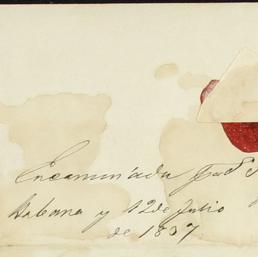 Encaminada por
Habana y 12 de Julio
de 1837